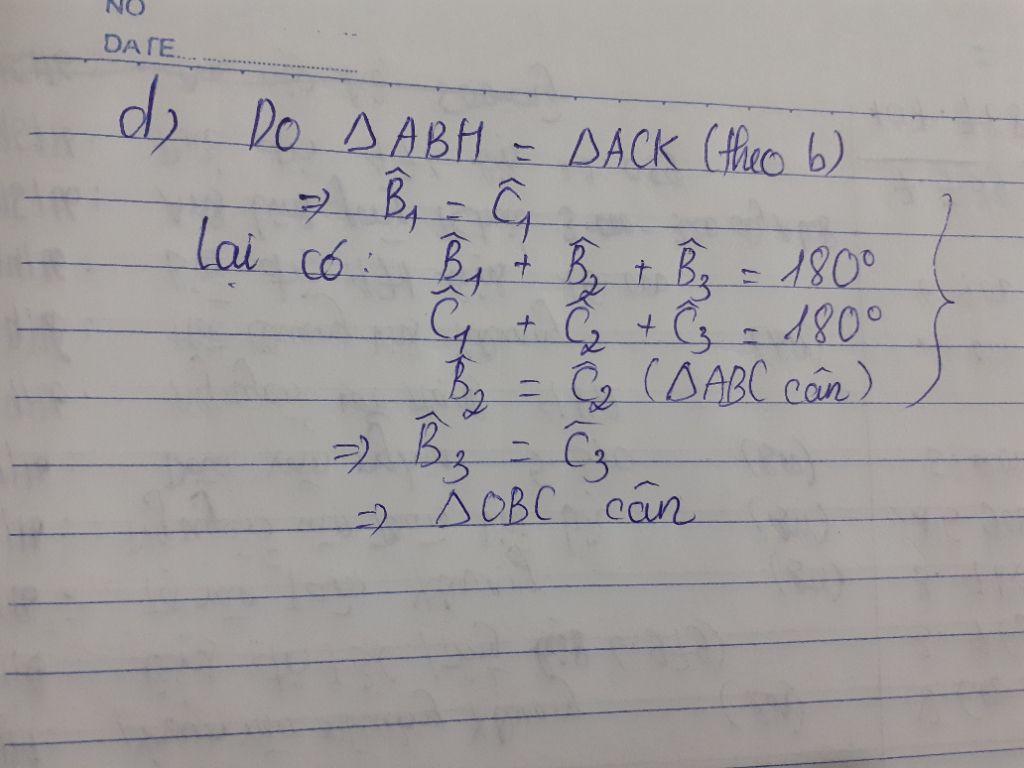 NO
DATE
d) Do ΔABH = ΔACK (theo b)
=> B̂₁ = Ĉ₁
Lại có: B̂₁ + B̂₂ + B̂₃ = 180°
Ĉ₁ + Ĉ₂ + Ĉ₃ = 180°
B̂₂ = Ĉ₂ (ΔABC cân)
=> B̂₃ = Ĉ₃
=> ΔOBC cân